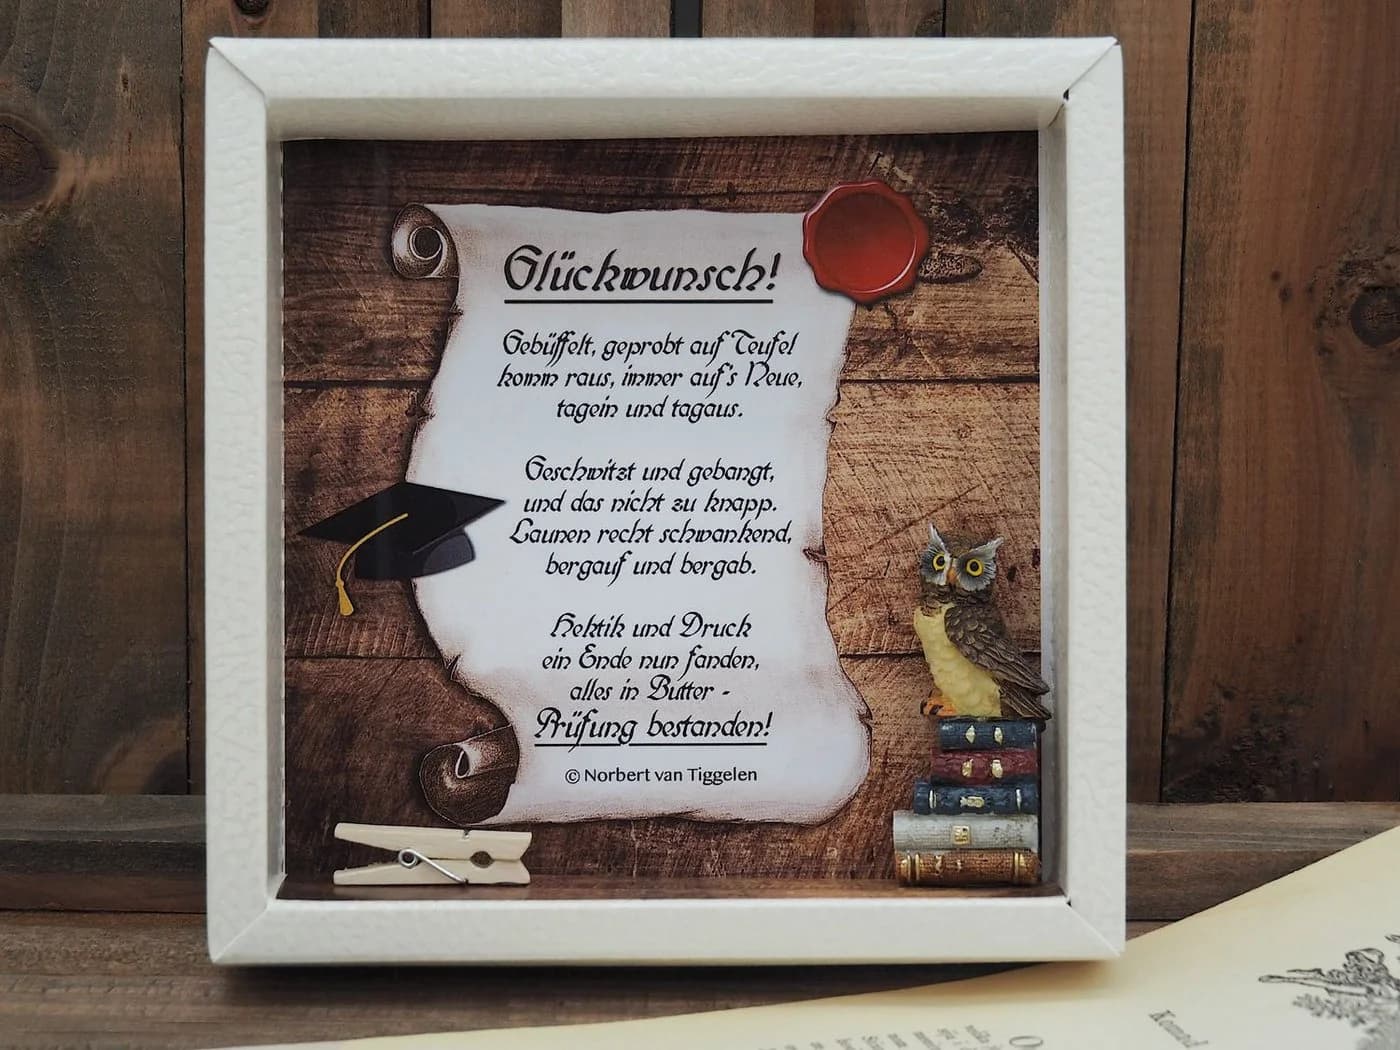 Glückwunsch!
Gebüffelt, geprobt auf Teufel
komm raus, immer auf's Neue,
tagein und tagaus.
Geschwitzt und gebangt,
und das nicht zu knapp.
Launen recht schwankend,
bergauf und bergab.
Hektik und Druck
ein Ende nun fanden,
alles in Butter -
Prüfung bestanden!
© Norbert van Tiggelen